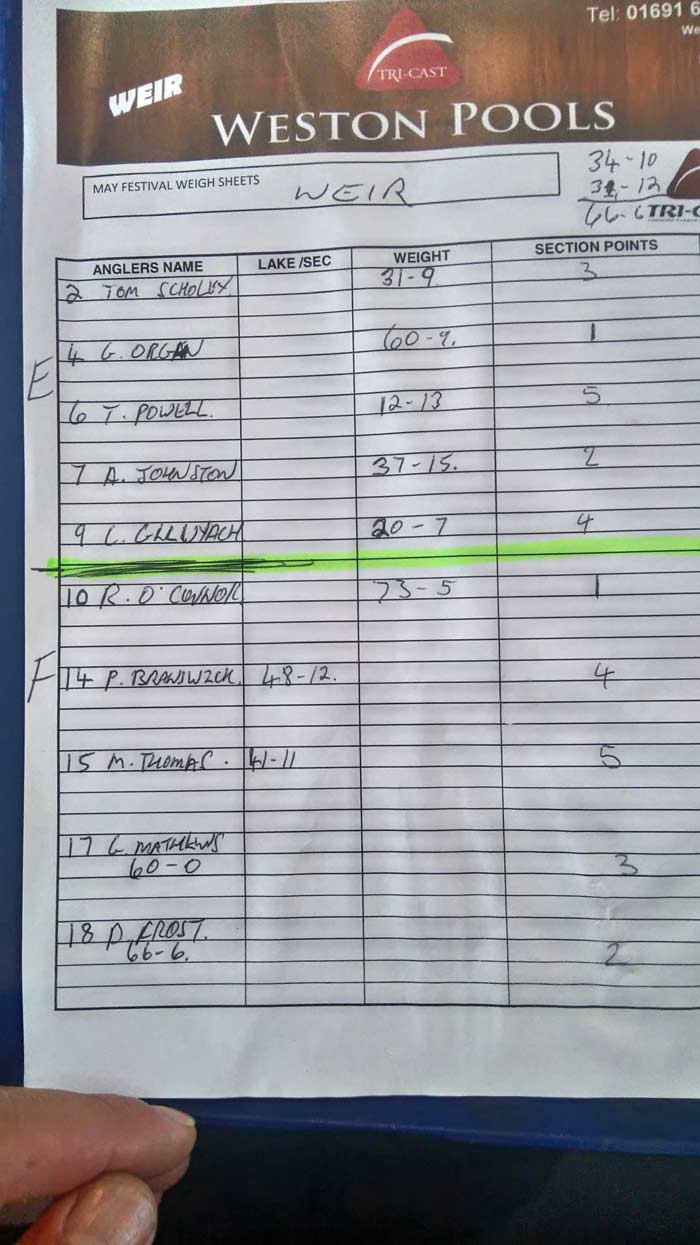 Tel: 01691 6
We
WEIR
TRI-CAST
WESTON POOLS
MAY FESTIVAL WEIGH SHEETS WEIR
34-10
31-12
66-6 TRI-C
ANGLERS NAME LAKE /SEC WEIGHT SECTION POINTS
2 TOM 31-9 3
4 G. ORGAN 60-9. 1
E
6 T. POWELL. 12-13 5
7 A. JOHNSTON 37-15. 2
9 20-7 4
10 R. O'CONNOR 73-5 1
F 14 P. BRANSWICK. 48-12. 4
15 M. THOMAS. 41-11 5
17 G. MATHEWS
60-0 3
18 D. FROST.
66-6. 2